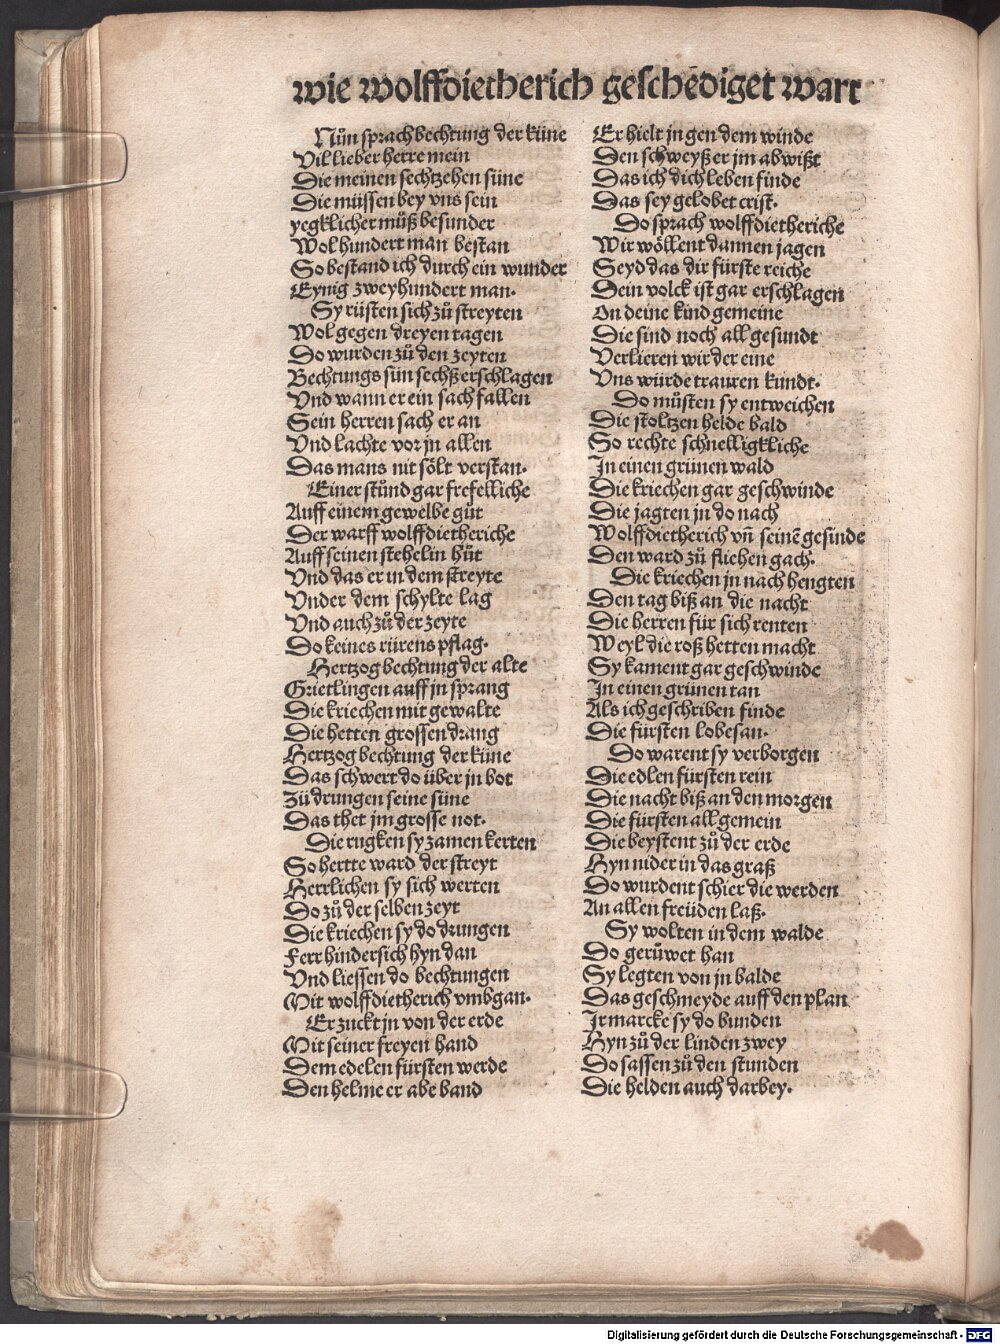 wie wolffdietherich geschēdiget wart
Nůn sprach bechtung der küne
Vil lieber herre mein
Die meinen sechtzehen süne
Die müssen bey vns sein
yegklicher můß besunder
Wol hundert man bestan
So bestand ich durch ein wunder
Eynig zweyhundert man.
Sy rüsten sich zů streyten
Wol gegen dreyen tagen
Do wurden zů den zeyten
Bechtungs sün sechß erschlagen
Vnd wann er ein sach fallen
Sein herren sach er an
Vnd lachte vor jn allen
Das mans nit sölt verstan.
Einer stůnd gar frefelliche
Auff einem gewelbe gůt
Der warff wolffdietheriche
Auff seinen stehelin hůt
Vnd das er in dem streyte
Vnder dem schylte lag
Vnd auch zů der zeyte
Do keines rürens pflag.
Hertzog bechtung der alte
Grietlingen auff jn sprang
Die kriechen mit gewalte
Die hetten grossen drang
Hertzog bechtung der küne
Das schwert do über jn bot
Zů drungen seine süne
Das thet jm grosse not.
Die rugken sy zamen kerten
So hertte ward der streyt
Herrlichen sy sich werten
Do zů der selben zeyt
Die kriechen sy do drungen
Ferr hindersich hyn dan
Vnd liessen do bechtungen
Mit wolffdietherich vmbgan.
Er zuckt jn von der erde
Mit seiner freyen hand
Dem edelen fürsten werde
Den helme er abe band
Er hielt jn gen dem winde
Den schweyß er jm ab wißt
Das ich dich leben finde
Das sey gelobet crist.
Do sprach wolffdietheriche
Wir wöllent dannen jagen
Seyd das dir fürste reiche
Dein volck ist gar erschlagen
On deine kind gemeine
Die sind noch all gesundt
Verlieren wir der eine
Vns würde trauren kundt.
Do můsten sy entweichen
Die stoltzen helde bald
So rechte schnelligkliche
In einen grünen wald
Die kriechen gar geschwinde
Die jagten jn do nach
Wolffdietherich vñ seinē gesinde
Den ward zů fliehen gach.
Die kriechen jn nach hengten
Den tag biß an die nacht
Die herren für sich renten
Weyl die roß hetten macht
Sy kament gar geschwinde
In einen grünen tan
Als ich geschriben finde
Die fürsten lobesan.
Do warent sy verborgen
Die edlen fürsten rein
Die nacht biß an den morgen
Die fürsten all gemein
Die beystent zů der erde
Hyn nider in das graß
Do wurdent schier die werden
An allen freüden laß.
Sy wolten in dem walde
Do gerůwet han
Sy legten von jn balde
Das geschmeyde auff den plan
Ir marcke sy do bunden
Hyn zů der linden zwey
Do sassen zů den stunden
Die helden auch darbey.
Digitalisierung gefördert durch die Deutsche Forschungsgemeinschaft - DFG